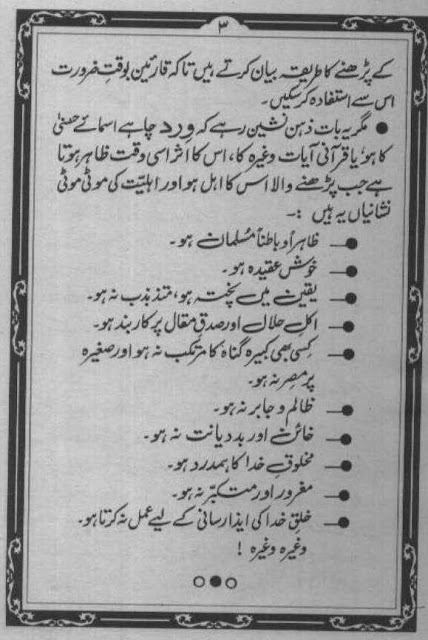 ۳
کے پڑھنے کا طریقہ بیان کرتے ہیں تاکہ قارئین بوقتِ ضرورت
اس سے استفادہ کر سکیں۔
● مگر یہ بات ذہن نشین رہے کہ وِرد چاہے اسمائے حسنیٰ
کا ہو یا قرآنی آیات وغیرہ کا، اس کا اثر اسی وقت ظاہر ہوتا
ہے جب پڑھنے والا اس کا اہل ہو اور اہلیّت کی موٹی موٹی
نشانیاں یہ ہیں :۔
● ظاہراً و باطناً مُسلمان ہو۔
● خوش عقیدہ ہو۔
● یقین میں پختہ ہو، متذبذب نہ ہو۔
● اکلِ حلال اور صدقِ مقال پر کاربند ہو۔
● کِسی بھی کبیرہ گناہ کا مرتکب نہ ہو اور صغیرہ
پر مصِر نہ ہو۔
● ظالم و جابر نہ ہو۔
● خائن اور بددیانت نہ ہو۔
● مخلوقِ خدا کا ہمدرد ہو۔
● مغرور اور متکبّر نہ ہو۔
● خلقِ خدا کی ایذا رسانی کے لیے عمل نہ کرتا ہو۔
وغیرہ وغیرہ !